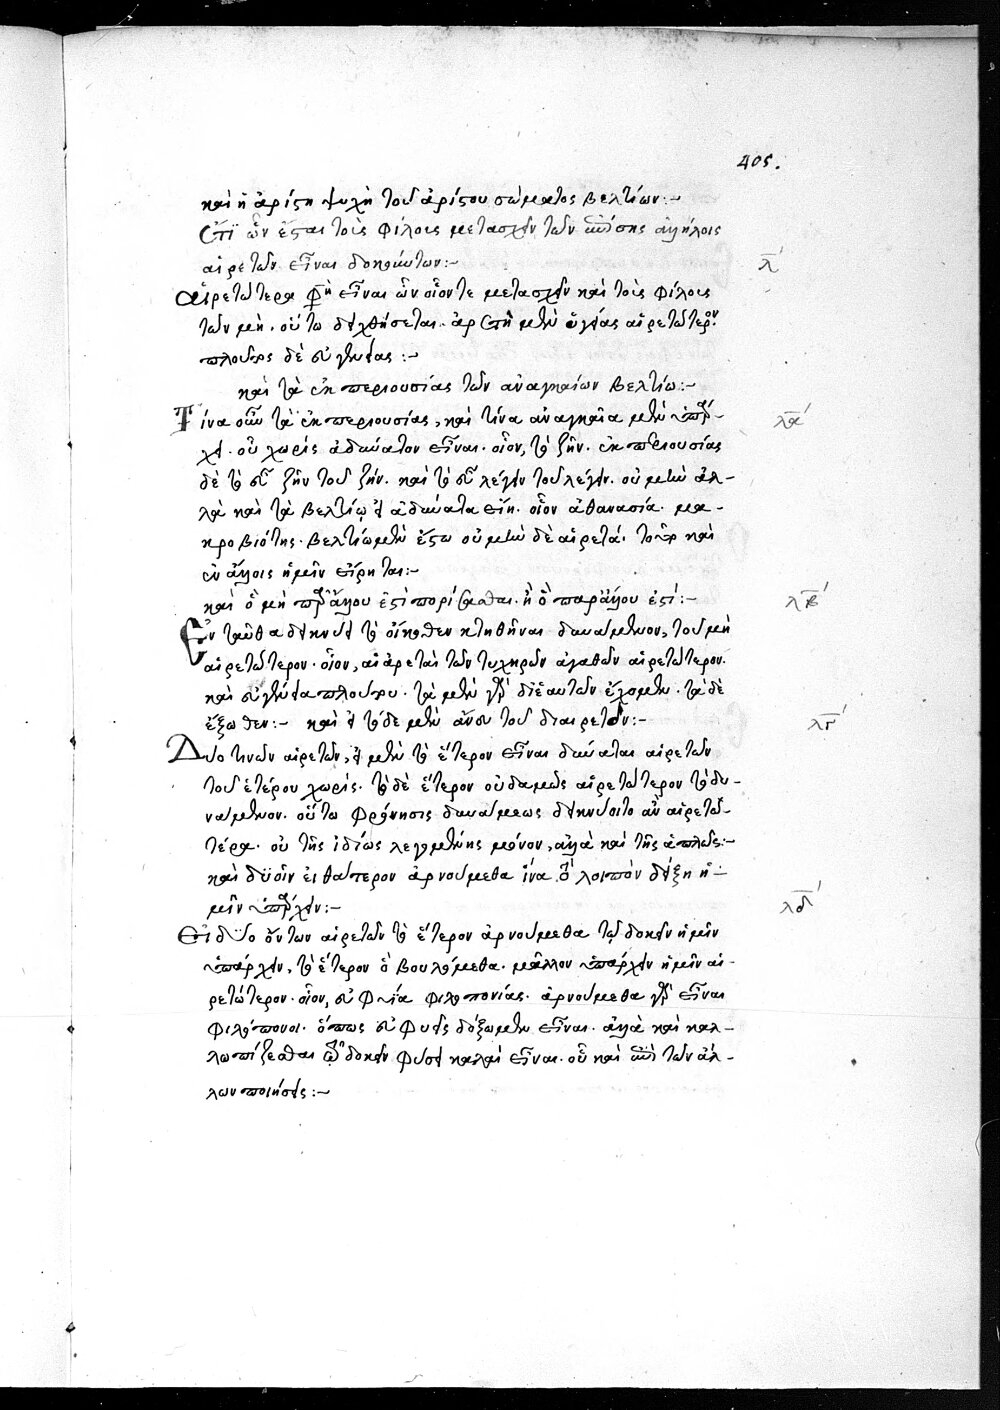 405.
καὶ ἡ ἀρίστη ψυχὴ τοῦ ἀρίστου σώματος βελτίων:~
Ἔτι ὧν ἔσται τοὺς φίλους μετασχεῖν τῶν ἐπίσης ἀλλήλοις
αἱρετῶν εἶναι δοκούντων:~ λ´
Αἱρετώτερα φησὶν εἶναι ὧν οἷόν τε μετασχεῖν καὶ τοὺς φίλους
τῶν μή. οὕτω δειχθήσεται. ὑγείας αἱρετώτερον
πλοῦτος δὲ εὐγενείας:~
καὶ τὰ ἐκ περιουσίας τῶν ἀναγκαίων βελτίω:~
Τίνα οὖν τὰ ἐκ περιουσίας, καὶ τίνα ἀναγκαῖα μὲν ὑπάρ- λα´
χει. οὗ χωρὶς ἀδύνατον εἶναι. οἷον, τὸ ζῆν. ἐκ περιουσίας
δὲ τὸ εὖ ζῆν τοῦ ζῆν. καὶ τὸ εὖ λέγειν τοῦ λέγειν. οὐ μὴν ἀλ-
λὰ καὶ τὰ βελτίω εἰ ἀδύνατα εἴη. οἷον ἀθανασία. μα-
κροβιότης. βελτίω μὲν ἔστω οὐ μὴν δὲ αἱρετά. τοῦτο γὰρ καὶ
ἐν ἄλλοις ἡμῖν εἴρηται:~
καὶ ὃ μὴ παρ' ἄλλου ἐστὶ πορίσασθαι. ἢ ὃ παρ' ἄλλου ἐστί:~ λβ´
Ἐνταῦθα δείκνυσι τὸ οἴκοθεν κτηθῆναι δυνάμενον, τοῦ μὴ
αἱρετώτερον. οἷον, αἱ ἀρεταὶ τῶν τυχηρῶν ἀγαθῶν αἱρετώτερον.
καὶ εὐγένεια πλούτου. τὰ μὲν γὰρ δι' ἑαυτῶν ἔχομεν. τὰ δὲ
ἔξωθεν:~ καὶ εἰ τόδε μὲν ἄνευ τοῦδε αἱρετόν:~ λγ´
Δύο τινῶν αἱρετῶν, εἰ μὲν τὸ ἕτερον εἶναι δύναται αἱρετὸν
τοῦ ἑτέρου χωρίς. τὸ δὲ ἕτερον οὐδαμῶς αἱρετώτερον τὸ δυ-
νάμενον. οὕτω φρόνησις δυνάμεως δεικνύοιτο ἂν αἱρετω-
τέρα. οὐ τῆς ἰδίως λεγομένης μόνον, ἀλλὰ καὶ τῆς ἁπλῶς:~
καὶ δυοῖν εἰ θάτερον ἀρνούμεθα ἵνα τὸ λοιπὸν δόξῃ ἡ-
μῖν ὑπάρχειν:~ λδ´
Εἰ δύο ὄντων αἱρετῶν τὸ ἕτερον ἀρνούμεθα τῷ δοκεῖν ἡμῖν
ὑπάρχειν, τὸ ἕτερον ὃ βουλόμεθα. μᾶλλον ὑπάρχειν ἡμῖν αἱ-
ρετώτερον. οἷον, εὐφυΐα φιλοπονίας. ἀρνούμεθα γὰρ εἶναι
φιλόπονοι. ὅπως εὐφυεῖς δόξωμεν εἶναι. ἀλλὰ καὶ καλ-
λωπίζεσθαι τῷ δοκεῖν φύσει καλαὶ εἶναι. οὗ καὶ ἐπὶ τῶν ἄλ-
λων ποιήσεις:~